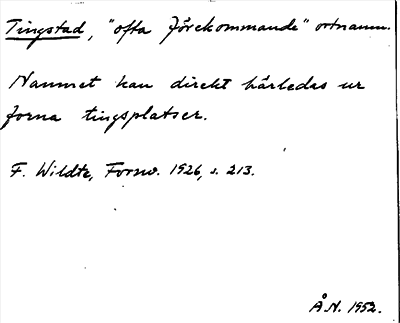 Tingstad, "ofta förekommande" ortnamn.
Namnet kan direkt härledas ur
forna tingsplatser.
F. Wildte, Fornv. 1926, s. 213.
Å.N. 1952.